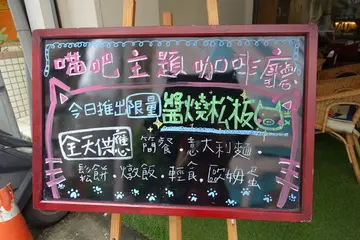 喵吧主題咖啡廳
今日推出限量 醬燒松板
全天供應 簡餐.意大利麵.
鬆餅.燉飯.輕食.歐姆蛋